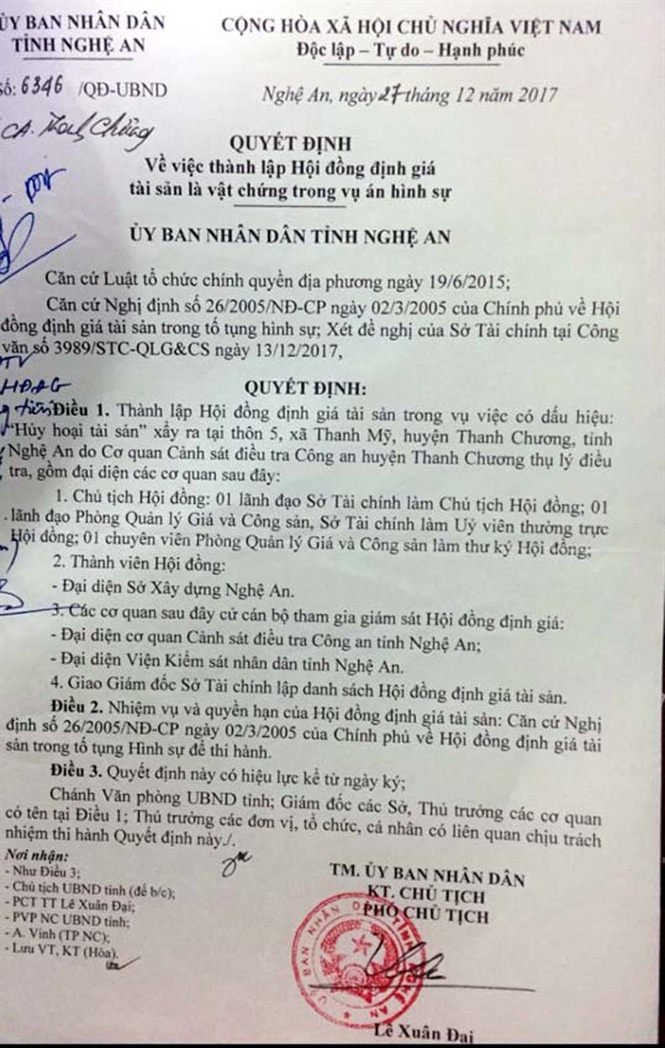 ỦY BAN NHÂN DÂN
TỈNH NGHỆ AN
CỘNG HÒA XÃ HỘI CHỦ NGHĨA VIỆT NAM
Độc lập – Tự do – Hạnh phúc
Số: 6346 /QĐ-UBND
Nghệ An, ngày 27 tháng 12 năm 2017
QUYẾT ĐỊNH
Về việc thành lập Hội đồng định giá
tài sản là vật chứng trong vụ án hình sự
ỦY BAN NHÂN DÂN TỈNH NGHỆ AN
Căn cứ Luật tổ chức chính quyền địa phương ngày 19/6/2015;
Căn cứ Nghị định số 26/2005/NĐ-CP ngày 02/3/2005 của Chính phủ về Hội
đồng định giá tài sản trong tố tụng hình sự; Xét đề nghị của Sở Tài chính tại Công
văn số 3989/STC-QLG&CS ngày 13/12/2017,
HĐĐG
QUYẾT ĐỊNH:
Điều 1. Thành lập Hội đồng định giá tài sản trong vụ việc có dấu hiệu:
"Hủy hoại tài sản" xẩy ra tại thôn 5, xã Thanh Mỹ, huyện Thanh Chương, tỉnh
Nghệ An do Cơ quan Cảnh sát điều tra Công an huyện Thanh Chương thụ lý điều
tra, gồm đại diện các cơ quan sau đây:
1. Chủ tịch Hội đồng: 01 lãnh đạo Sở Tài chính làm Chủ tịch Hội đồng; 01
lãnh đạo Phòng Quản lý Giá và Công sản, Sở Tài chính làm Uỷ viên thường trực
Hội đồng; 01 chuyên viên Phòng Quản lý Giá và Công sản làm thư ký Hội đồng;
2. Thành viên Hội đồng:
- Đại diện Sở Xây dựng Nghệ An.
3. Các cơ quan sau đây cử cán bộ tham gia giám sát Hội đồng định giá:
- Đại diện cơ quan Cảnh sát điều tra Công an tỉnh Nghệ An;
- Đại diện Viện Kiểm sát nhân dân tỉnh Nghệ An.
4. Giao Giám đốc Sở Tài chính lập danh sách Hội đồng định giá tài sản.
Điều 2. Nhiệm vụ và quyền hạn của Hội đồng định giá tài sản: Căn cứ Nghị
định số 26/2005/NĐ-CP ngày 02/3/2005 của Chính phủ về Hội đồng định giá tài
sản trong tố tụng Hình sự để thi hành.
Điều 3. Quyết định này có hiệu lực kể từ ngày ký;
Chánh Văn phòng UBND tỉnh; Giám đốc các Sở, Thủ trưởng các cơ quan
có tên tại Điều 1; Thủ trưởng các đơn vị, tổ chức, cá nhân có liên quan chịu trách
nhiệm thi hành Quyết định này./.
Nơi nhận:
- Như Điều 3;
- Chủ tịch UBND tỉnh (để b/c);
- PCT TT Lê Xuân Đại;
- PVP NC UBND tỉnh;
- A. Vinh (TP NC);
- Lưu VT, KT (Hòa).
TM. ỦY BAN NHÂN DÂN
KT. CHỦ TỊCH
PHÓ CHỦ TỊCH
Lê Xuân Đại